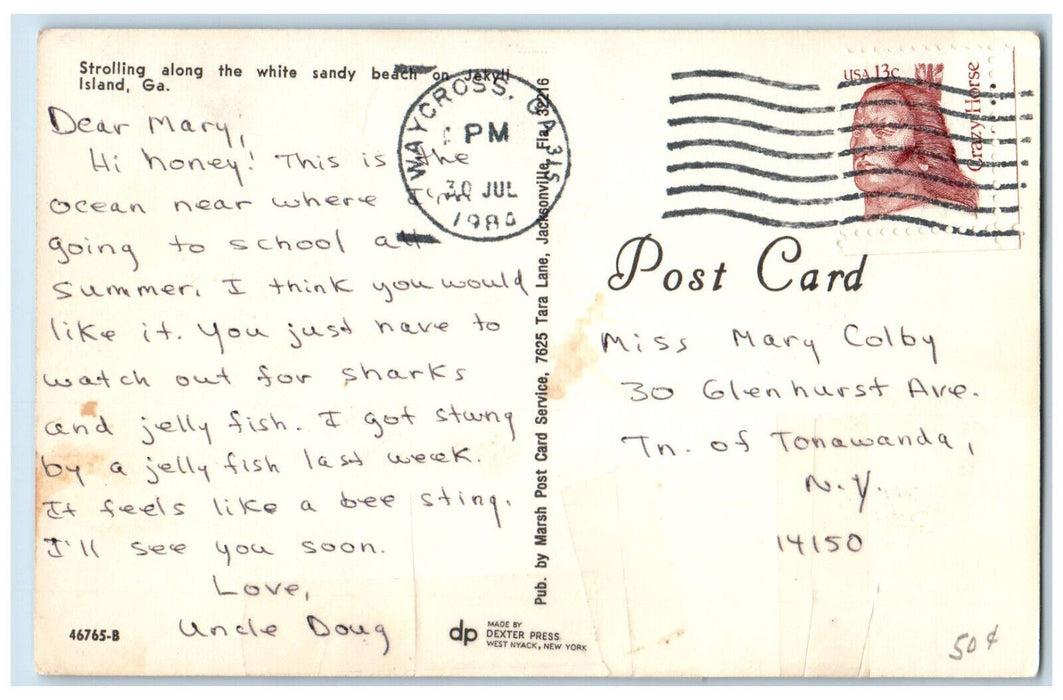 Strolling along the white sandy beach on Jekyll
Island, Ga.
Dear Mary,
Hi honey! This is the
ocean near where I'm
going to school all
summer. I think you would
like it. You just have to
watch out for sharks
and jelly fish. I got stung
by a jelly fish last week.
It feels like a bee sting.
I'll see you soon.
Love,
Uncle Doug
46765-B
dp
MADE BY
DEXTER PRESS
WEST NYACK, NEW YORK
Pub. by Marsh Post Card Service, 7625 Tara Lane, Jacksonville, Fla. 32216
WAYCROSS, GA 315
PM
30 JUL
1980
USA 13c
Crazy Horse
Post Card
Miss Mary Colby
30 Glenhurst Ave.
Tn. of Tonawanda,
N.Y.
14150
50¢